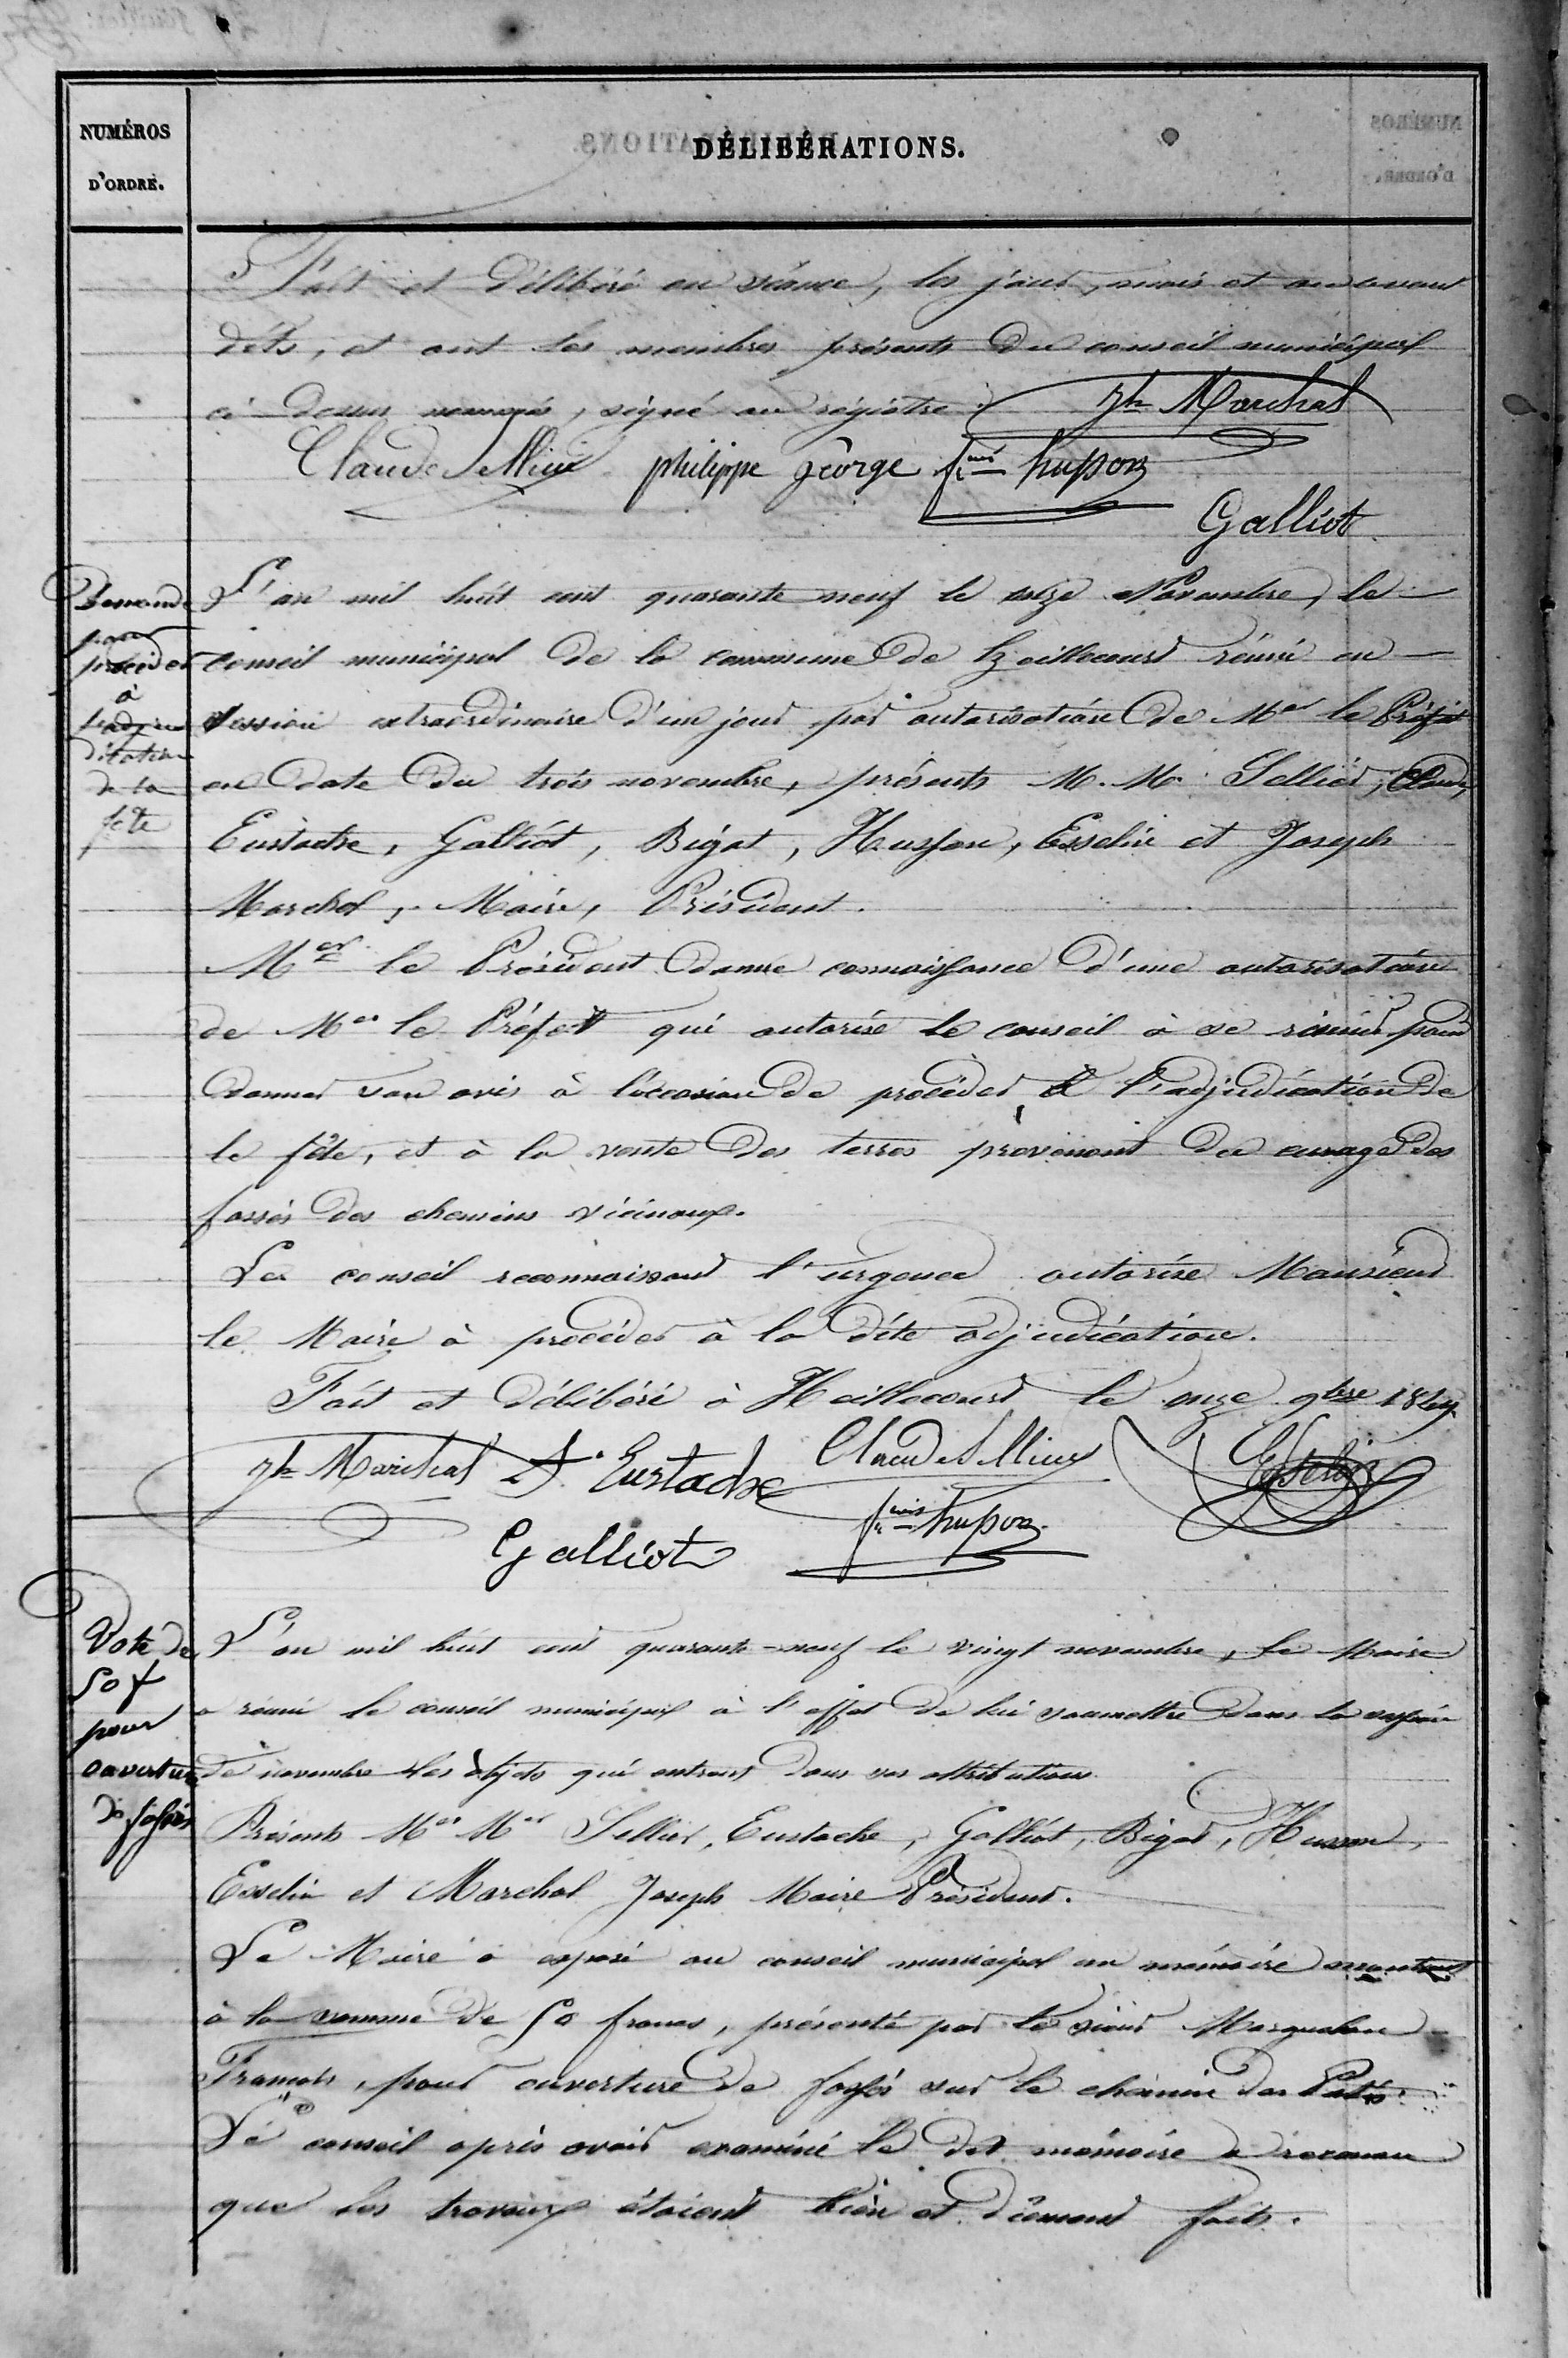 NUMÉROS
D'ORDRE.
DÉLIBÉRATIONS.
Fait et Délibéré en séance, les jour, mois et an avant
dits, et ont les membres présents du conseil municipal
ci-dessus nommés, signé au régistre. Jh Marchal
Claude Sellier philippe george fcois husson
Galliot
Demande
pour
procéder
à
l'adju
dication
de la
fête
L'an mil huit cent quarante neuf le onze Novembre, le
Conseil municipal de la commune de heillecourt réuni en
session extraordinaire d'un jour par autorisation de Mer le Préfet
en date du trois novembre, présents M. M. Sellier, Claude,
Eustache, Galliot, Bigot, Husson, Esselin et Joseph
Marchal, Maire, Président.
Mer le Président donne connaissance d'une autorisation
de Mer le Préfet qui autorise le conseil à se réunir pour
donner son avis à l'occasion de procéder à l'adjudication de
la fête, et à la vente des terres provenant du curage des
fossés des chemins vicinaux.
Le conseil reconnaissant l'urgence autorise Monsieur
le Maire à procéder à la dite adjudication.
Fait et délibéré à Heillecourt le onze 9bre 1849
Jh Marchal Eustache Claude Sellier Esselin
Galliot fcois husson
Vote de
50 f
pour
ouverture
de fossés
L'an mil huit cent quarante-neuf le vingt novembre, le Maire
a réuni le conseil municipal à l'effet de lui soumettre dans la session
de novembre les objets qui entrent dans ses attributions.
Présents Mer Mer Sellier, Eustache, Galliot, Bigot, Husson,
Esselin et Marchal Joseph Maire Président.
Le Maire a exposé au conseil municipal un mémoire montant
à la somme de 50 francs, présenté par le sieur
François, pour ouverture de fossés sur le chemin des Patis.
Le conseil après avoir examiné le dit mémoire a reconnu
que les travaux étaient bien et dûment faits.